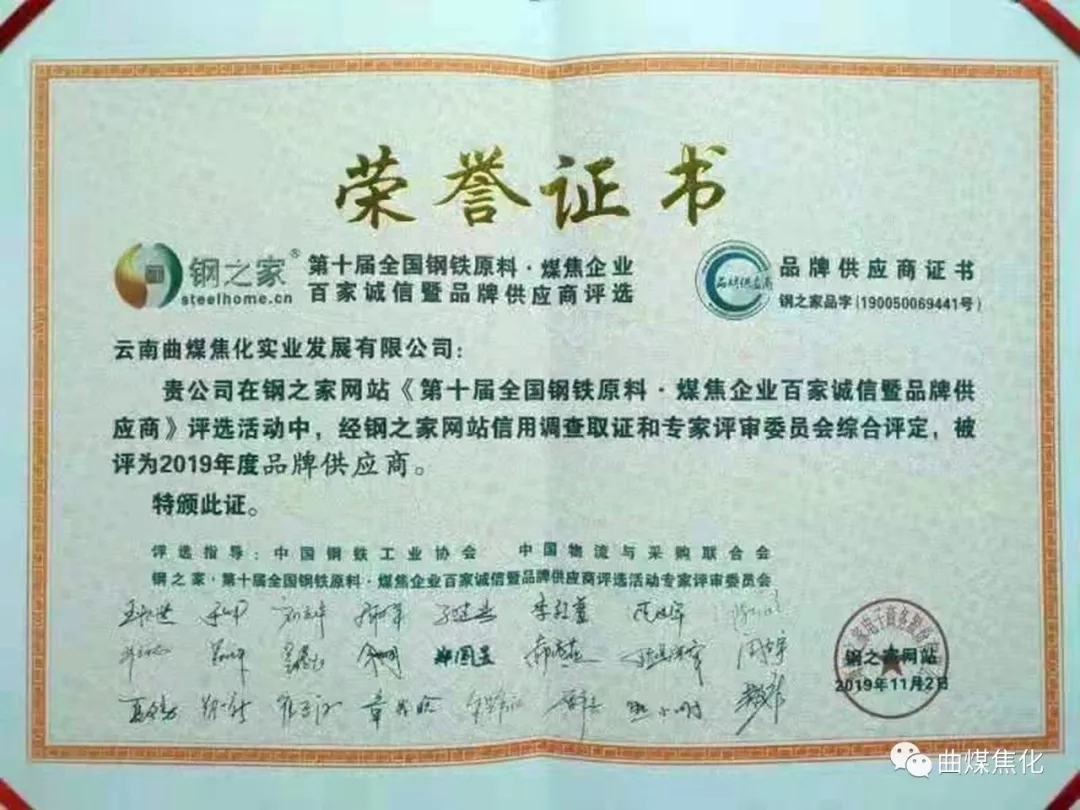 荣誉证书
钢之家®
steelhome.cn
第十届全国钢铁原料·煤焦企业
百家诚信暨品牌供应商评选
品牌供应商
品牌供应商证书
钢之家品字(190050069441号)
云南曲煤焦化实业发展有限公司:
贵公司在钢之家网站《第十届全国钢铁原料·煤焦企业百家诚信暨品牌供
应商》评选活动中,经钢之家网站信用调查取证和专家评审委员会综合评定,被
评为2019年度品牌供应商。
特颁此证。
评选指导:中国钢铁工业协会 中国物流与采购联合会
钢之家·第十届全国钢铁原料·煤焦企业百家诚信暨品牌供应商评选活动专家评审委员会
钢之家网站
2019年11月2日
曲煤焦化